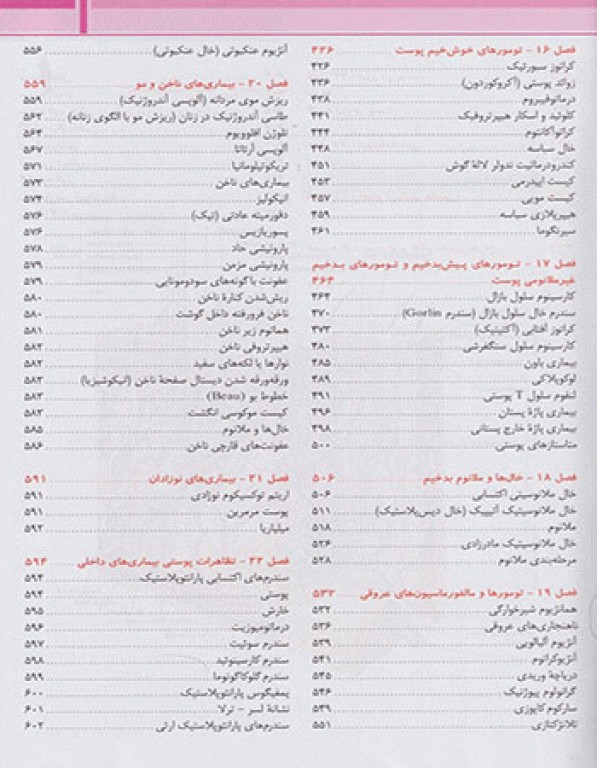 فصل ۱۶ - تومورهای خوش‌خیم پوست ۴۳۶
کراتوز سبورئیک ۴۳۶
زوائد پوستی (آکروکوردون) ۴۳۶
درماتوفیبروم ۴۳۸
کلوئید و اسکار هیپرتروفیک ۴۴۱
کراتوآکانتوم ۴۴۴
خال سباسه ۴۴۸
کندرودرماتیت ندولر لاله گوش ۴۵۱
کیست اپیدرمی ۴۵۳
کیست مویی ۴۵۷
هیپرپلازی سباسه ۴۵۹
سیرنگوما ۴۶۱
فصل ۱۷ - تومورهای پیش‌بدخیم و تومورهای بدخیم
غیرملانومی پوست ۴۶۴
کارسینوم سلول بازال ۴۶۴
سندرم خال سلول بازال (سندرم Gorlin) ۴۷۰
کراتوز آفتابی (آکتینیک) ۴۷۳
کارسینوم سلول سنگفرشی ۴۸۰
بیماری باون ۴۸۵
لوکوپلاکی ۴۸۹
لنفوم سلول T پوستی ۴۹۱
بیماری پاژهٔ پستان ۴۹۶
بیماری پاژهٔ خارج پستانی ۴۹۸
متاستازهای پوستی ۵۰۰
فصل ۱۸ - خال‌ها و ملانوم بدخیم ۵۰۶
خال ملانوسیتی اکتسابی ۵۰۶
خال ملانوسیتیک آتیپیک (خال دیس‌پلاستیک) ۵۱۱
ملانوم ۵۱۸
خال ملانوسیتیک مادرزادی ۵۲۶
مرحله‌بندی ملانوم ۵۲۸
فصل ۱۹ - تومورها و مالفورماسیون‌های عروقی ۵۳۲
همانژیوم شیرخوارگی ۵۳۲
ناهنجاری‌های عروقی ۵۳۶
آنژیوم آلبالویی ۵۳۹
آنژیوکراتوم ۵۴۱
دریاچهٔ وریدی ۵۴۵
گرانولوم پیوژنیک ۵۴۶
سارکوم کاپوزی ۵۴۹
تلانژکتازی ۵۵۱
آنژیوم عنکبوتی (خال عنکبوتی) ۵۵۶
فصل ۲۰ - بیماری‌های ناخن و مو ۵۵۹
ریزش موی مردانه (آلوپسی آندروژنیک) ۵۵۹
طاسی آندروژنیک در زنان (ریزش مو با الگوی زنانه) ۵۶۲
تلوژن افلوویوم ۵۶۴
آلوپسی آرئاتا ۵۶۷
تریکوتیلومانیا ۵۷۱
بیماری‌های ناخن ۵۷۳
انیکولیز ۵۷۴
دفورمیته عادتی (تیک) ۵۷۶
پسوریازیس ۵۷۶
پارونیشی حاد ۵۷۸
پارونیشی مزمن ۵۷۹
عفونت با گونه‌های سودومونایی ۵۷۹
ریش‌شدن کنارهٔ ناخن ۵۸۰
ناخن فرورفته داخل گوشت ۵۸۰
هماتوم زیر ناخن ۵۸۱
هیپرتروفی ناخن ۵۸۲
نوارها یا لکه‌های سفید ۵۸۲
ورقه‌ورقه شدن دیستال صفحهٔ ناخن (انیکوشیزیا) ۵۸۳
خطوط بو (Beau) ۵۸۳
کیست موکوسی انگشت ۵۸۳
خال‌ها و ملانوم ۵۸۵
عفونت‌های قارچی ناخن ۵۸۶
فصل ۲۱ - بیماری‌های نوزادان ۵۹۱
اریتم توکسیکوم نوزادی ۵۹۱
پوست مرمرین ۵۹۱
میلیاریا ۵۹۲
فصل ۲۲ - تظاهرات پوستی بیماری‌های داخلی ۵۹۴
سندرم‌های اکتسابی پارانئوپلاستیک
پوستی ۵۹۴
خارش ۵۹۵
درماتومیوزیت ۵۹۶
سندرم سوئیت ۵۹۷
سندرم کارسینوئید ۵۹۸
سندرم گلوکاگونوما ۵۹۹
پمفیگوس پارانئوپلاستیک ۶۰۰
نشانهٔ لسر - ترلا ۶۰۱
سندرم‌های پارانئوپلاستیک ارثی ۶۰۲